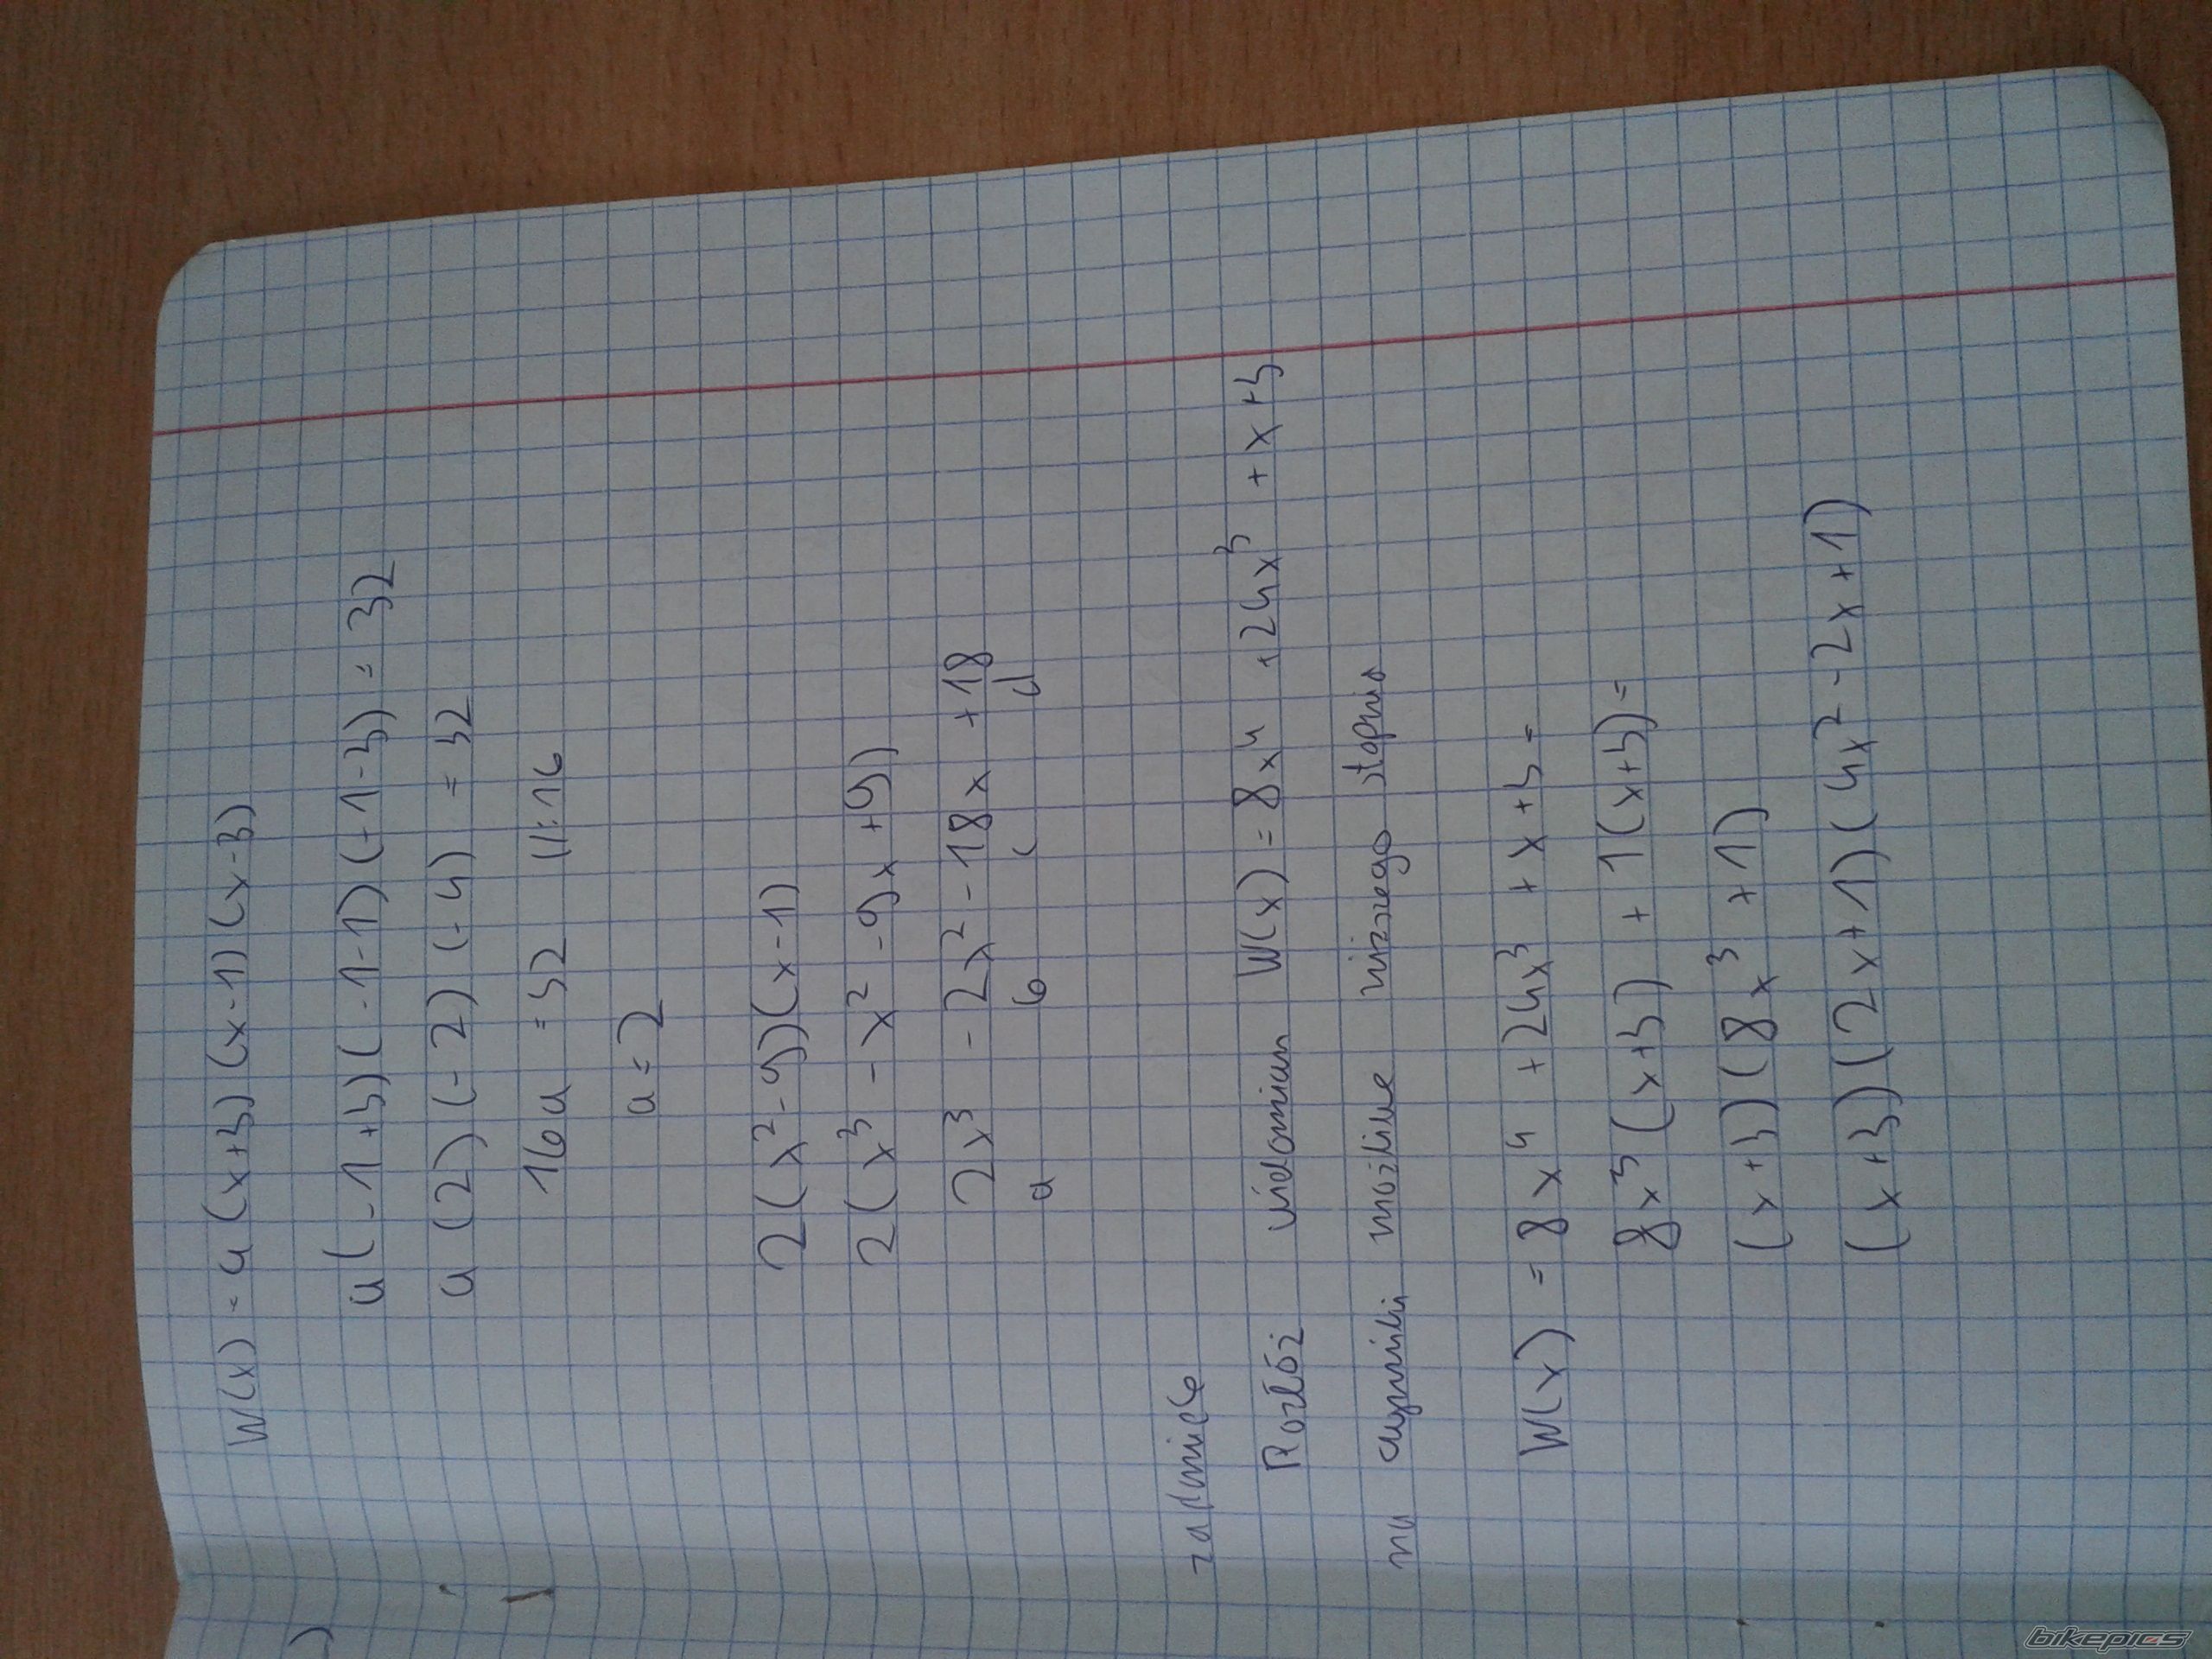 W(x) = a(x+3)(x-1)(x-3)
a(-1+3)(-1-1)(-1-3) = 32
a(2)(-2)(-4) = 32
16a = 32 //:16
a = 2
2(x²-9)(x-1)
2(x³ - x² - 9x + 9)
2x³ - 2x² - 18x + 18
a b c d
zadanie 6
Rozłóż wielomian W(x) = 8x⁴ + 24x³ + x + 3
na czynniki możliwe niższego stopnia
W(x) = 8x⁴ + 24x³ + x + 3 =
8x³(x+3) + 1(x+3) =
(x+3)(8x³+1)
(x+3)(2x+1)(4x²-2x+1)
)
bikepics